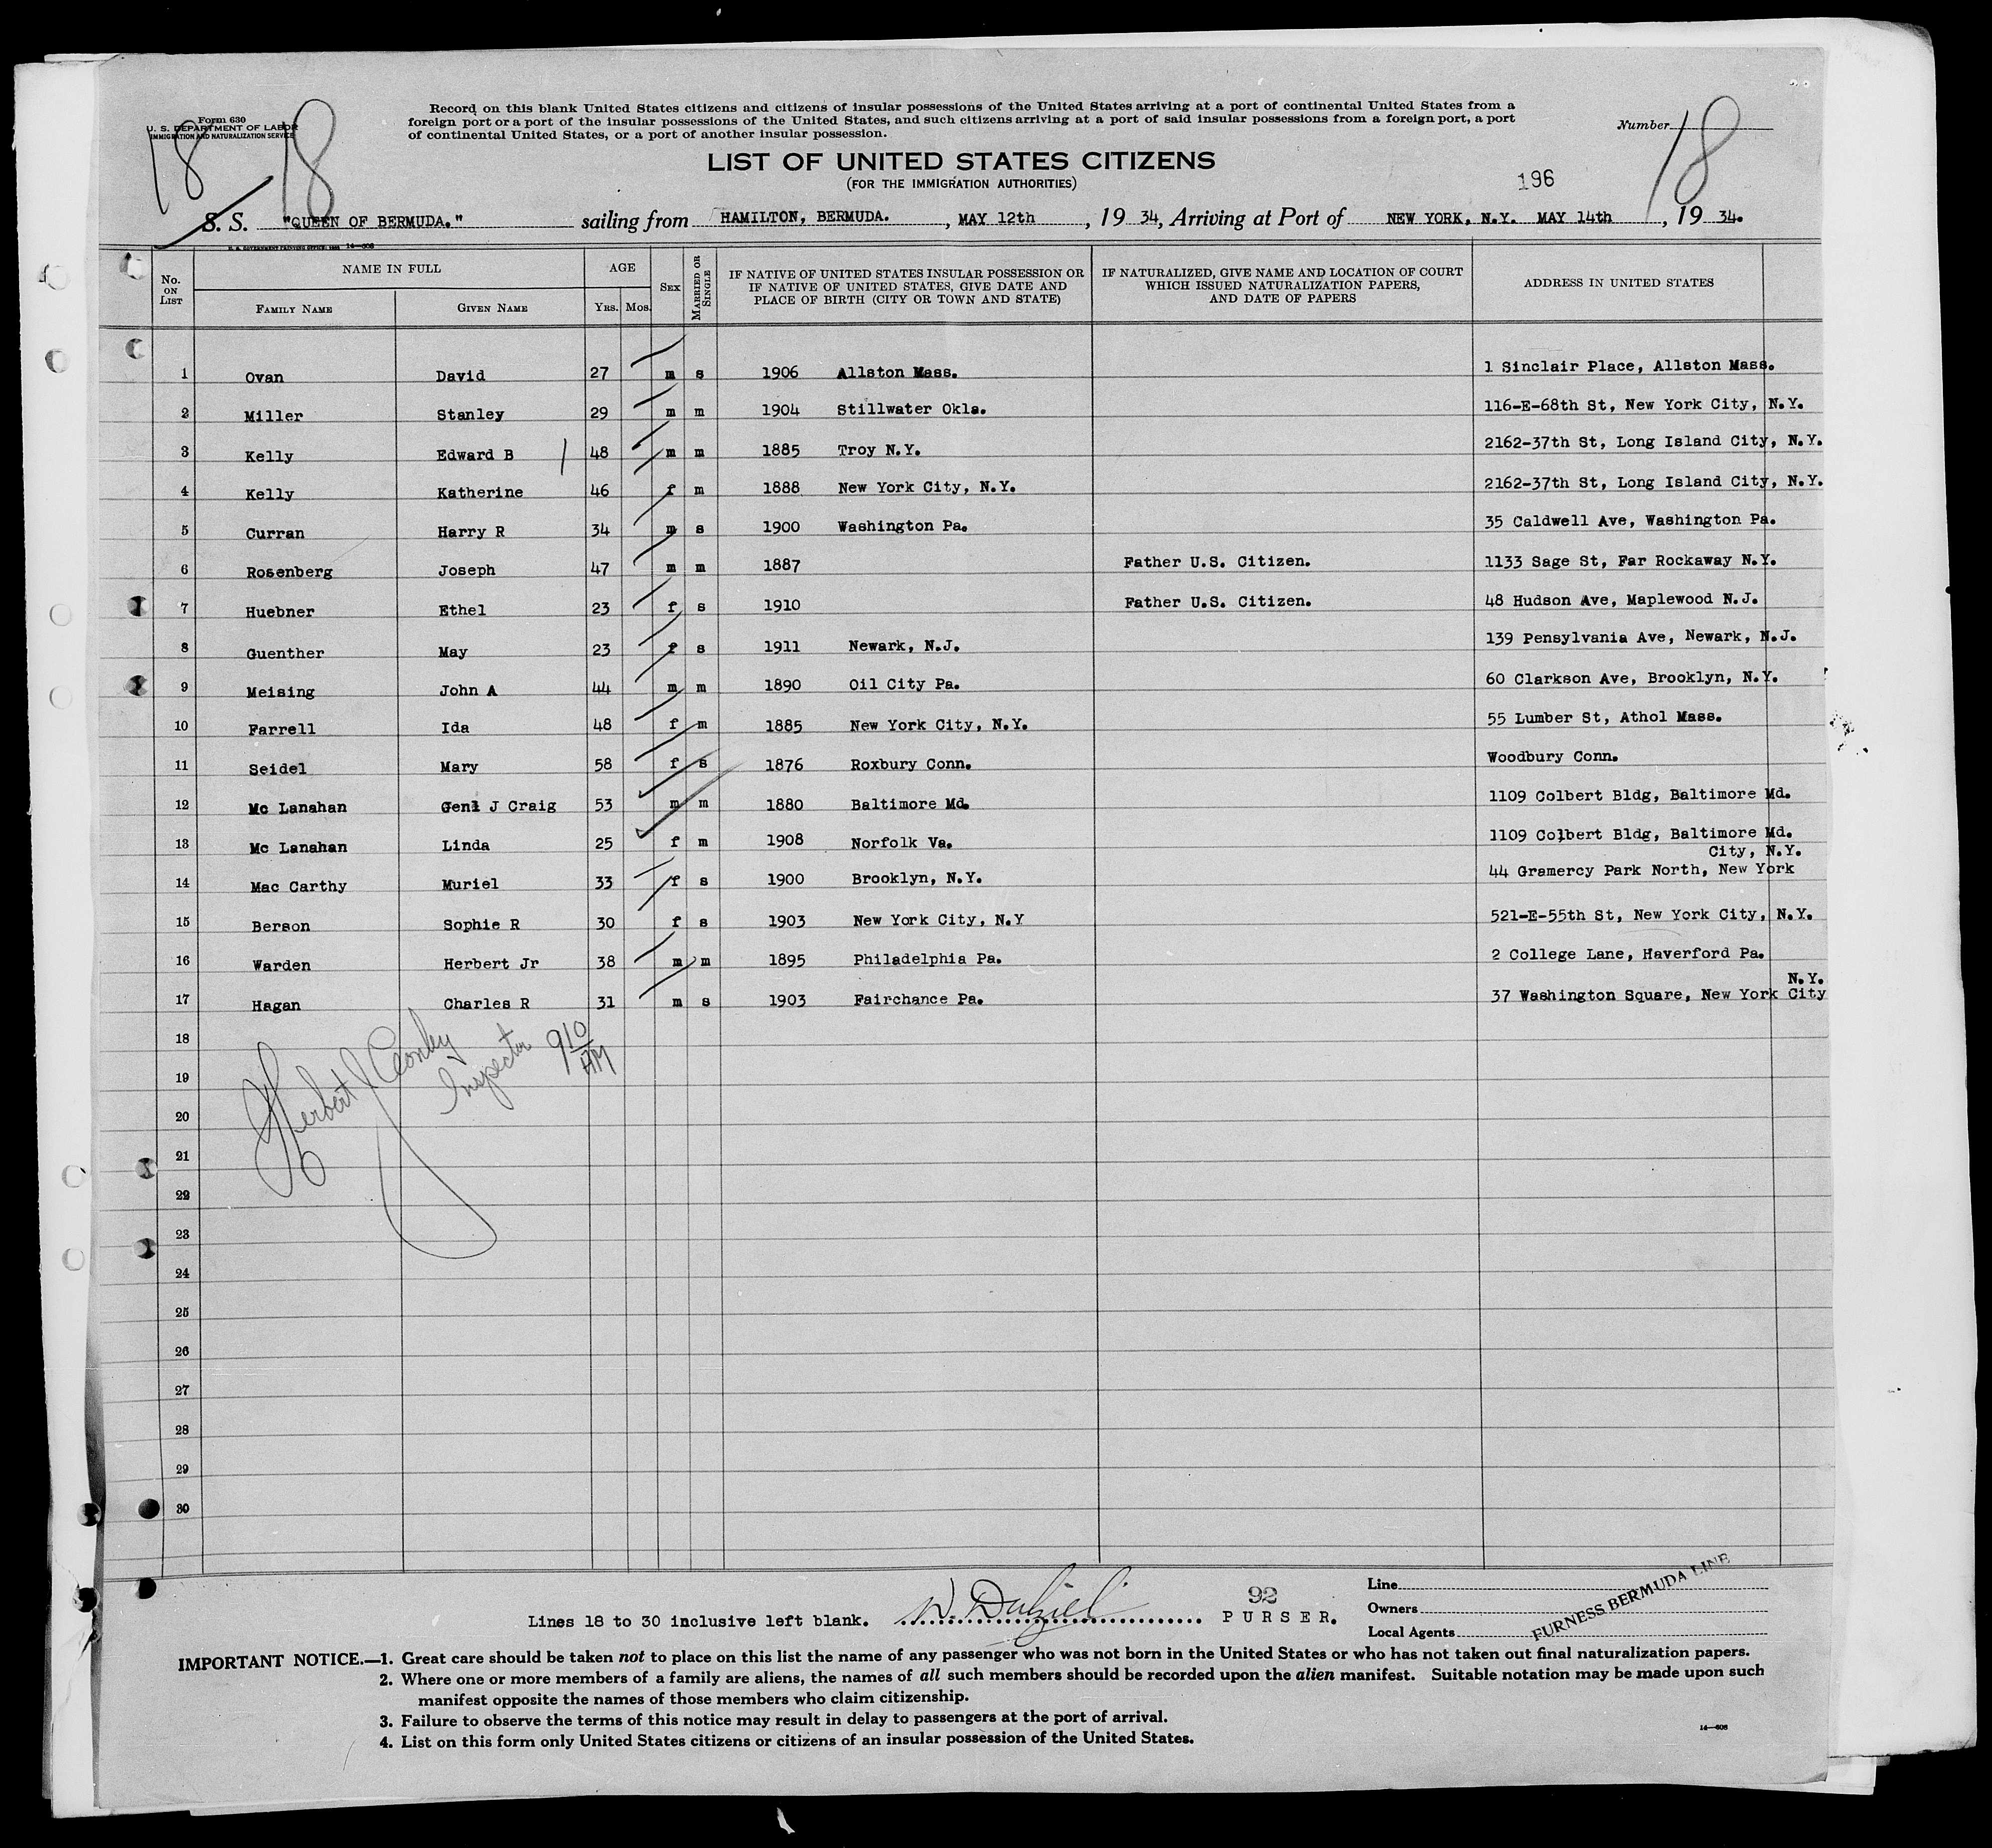 Form 630
U. S. DEPARTMENT OF LABOR
IMMIGRATION AND NATURALIZATION SERVICE
18 18
Record on this blank United States citizens and citizens of insular possessions of the United States arriving at a port of continental United States from a
foreign port or a port of the insular possessions of the United States, and such citizens arriving at a port of said insular possessions from a foreign port, a port
of continental United States, or a port of another insular possession.
Number 18
LIST OF UNITED STATES CITIZENS
(FOR THE IMMIGRATION AUTHORITIES)
196
S. S. "QUEEN OF BERMUDA." sailing from HAMILTON, BERMUDA. , MAY 12th , 19 34, Arriving at Port of NEW YORK, N.Y. MAY 14th , 19 34.
No. ON LIST NAME IN FULL FAMILY NAME GIVEN NAME AGE YRS. MOS. SEX MARRIED OR SINGLE IF NATIVE OF UNITED STATES INSULAR POSSESSION OR IF NATIVE OF UNITED STATES, GIVE DATE AND PLACE OF BIRTH (CITY OR TOWN AND STATE) IF NATURALIZED, GIVE NAME AND LOCATION OF COURT WHICH ISSUED NATURALIZATION PAPERS, AND DATE OF PAPERS ADDRESS IN UNITED STATES
1 Ovan David 27 m s 1906 Allston Mass. 1 Sinclair Place, Allston Mass.
2 Miller Stanley 29 m m 1904 Stillwater Okla. 116-E-68th St, New York City, N.Y.
3 Kelly Edward B 48 m m 1885 Troy N.Y. 2162-37th St, Long Island City, N.Y.
4 Kelly Katherine 46 f m 1888 New York City, N.Y. 2162-37th St, Long Island City, N.Y.
5 Curran Harry R 34 m s 1900 Washington Pa. 35 Caldwell Ave, Washington Pa.
6 Rosenberg Joseph 47 m m 1887 Father U.S. Citizen. 1133 Sage St, Far Rockaway N.Y.
7 Huebner Ethel 23 f s 1910 Father U.S. Citizen. 48 Hudson Ave, Maplewood N.J.
8 Guenther May 23 f s 1911 Newark, N.J. 139 Pensylvania Ave, Newark, N.J.
9 Meising John A 44 m m 1890 Oil City Pa. 60 Clarkson Ave, Brooklyn, N.Y.
10 Farrell Ida 48 f m 1885 New York City, N.Y. 55 Lumber St, Athol Mass.
11 Seidel Mary 58 f s 1876 Roxbury Conn. Woodbury Conn.
12 Mc Lanahan Genl J Craig 53 m m 1880 Baltimore Md. 1109 Colbert Bldg, Baltimore Md.
13 Mc Lanahan Linda 25 f m 1908 Norfolk Va. 1109 Colbert Bldg, Baltimore Md.
City, N.Y.
14 Mac Carthy Muriel 33 f s 1900 Brooklyn, N.Y. 44 Gramercy Park North, New York
15 Berson Sophie R 30 f s 1903 New York City, N.Y 521-E-55th St, New York City, N.Y.
16 Warden Herbert Jr 38 m m 1895 Philadelphia Pa. 2 College Lane, Haverford Pa.
N.Y.
17 Hagan Charles R 31 m s 1903 Fairchance Pa. 37 Washington Square, New York City
18
19
20
21
22
23
24
25
26
27
28
29
30
Herbert J
Inspector 910 AM
Lines 18 to 30 inclusive left blank.
92
PURSER.
Line
Owners
Local Agents
FURNESS BERMUDA LINE
IMPORTANT NOTICE.—1. Great care should be taken not to place on this list the name of any passenger who was not born in the United States or who has not taken out final naturalization papers.
2. Where one or more members of a family are aliens, the names of all such members should be recorded upon the alien manifest. Suitable notation may be made upon such
manifest opposite the names of those members who claim citizenship.
3. Failure to observe the terms of this notice may result in delay to passengers at the port of arrival.
4. List on this form only United States citizens or citizens of an insular possession of the United States.
14—608